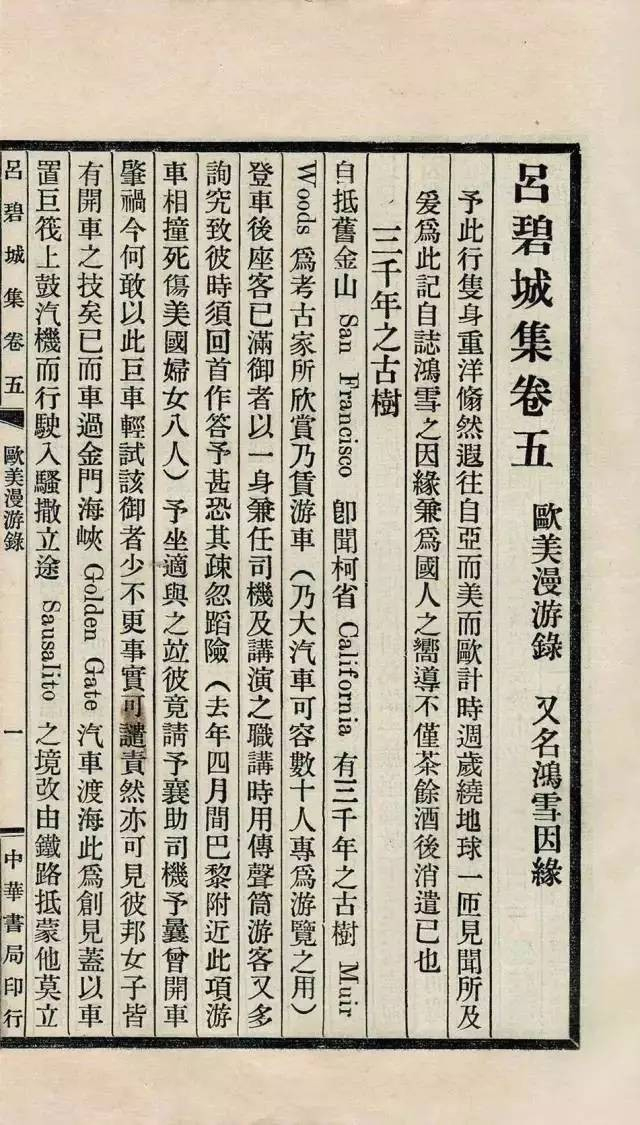 呂碧城集卷五
歐美漫游錄 又名鴻雪因緣
予此行隻身重洋翛然遐往自亞而美而歐計時週歲繞地球一匝見聞所及
爰為此記自誌鴻雪之因緣兼為國人之嚮導不僅茶餘酒後消遣已也
三千年之古樹
自抵舊金山 San Francisco 卽聞柯省 California 有三千年之古樹 Muir
Woods 為考古家所欣賞乃賃游車（乃大汽車可容數十人專為游覽之用）
登車後座客已滿御者以一身兼任司機及講演之職講時用傳聲筒游客又多
詢究致彼時須回首作答予甚恐其疎忽蹈險（去年四月間巴黎附近此項游
車相撞死傷美國婦女八人）予坐適與之竝彼竟請予襄助司機予曩曾開車
肇禍今何敢以此巨車輕試該御者少不更事實可譴責然亦可見彼邦女子皆
有開車之技矣已而車過金門海峽 Golden Gate 汽車渡海此為創見蓋以車
置巨筏上鼓汽機而行駛入騷撒立途 Sausalito 之境改由鐵路抵蒙他莫立
呂碧城集卷五 歐美漫游錄 一 中華書局印行